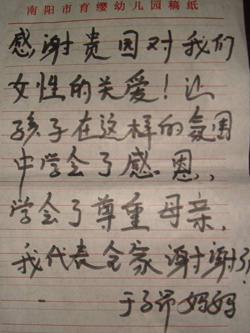 南阳市育缨幼儿园稿纸
感谢贵园对我们
女性的关爱！让
孩子在这样的氛围
中学会了感恩，
学会了尊重母亲，
我代表全家谢谢
于子
妈妈